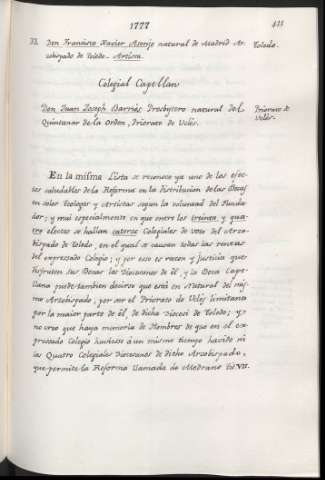 1777
411
33. Don Francisco Xavier Asenjo natural de Madrid Ar- Toledo.
zobispado de Toledo. Artista.
Colegial Capellan
Don Juan Joseph Barriàs Presbytero natural del Priorato de
Quintanar de la Orden, Priorato de Velès. Velès.
En la misma Lista se reconoce ya uno de los efec-
tos saludables de la Reforma en la distribucion de las Becas
en solos Teologos y Artistas segun la voluntad del Funda-
dor; y mui especialmente en que entre los treinta y qua-
tro electos se hallan catorce Colegiales de voto del Arzo-
bispado de Toledo, en el qual se causan todas las rentas
del expressado Colegio; y por esto es razon y justicia que
disfruten sus Becas los Diocesanos de èl, y la Beca Cape-
llana puede tambien decirse que està en Natural del mis-
mo Arzobispado, por ser el Priorato de Velès limitante
por la maior parte de èl, de dicha Diocesi de Toledo; y
no creo que haya memoria de Hombres de que en el ex-
pressado Colegio huviesse à un mismo tiempo havido ni
las Quatro Colegiales Diocesanos de dicho Arzobispado,
que permite la Reforma llamada de Medrano tit. VII.